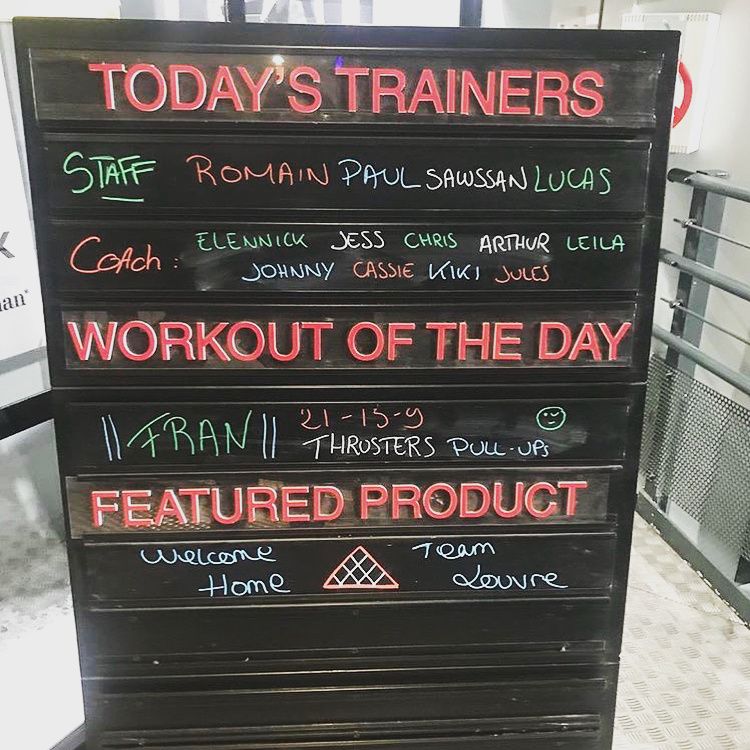 TODAY'S TRAINERS
STAFF ROMAIN PAUL SAWSSAN LUCAS
COACH: ELENNICK JESS CHRIS ARTHUR LEILA
JOHNNY CASSIE KIKI JULES
WORKOUT OF THE DAY
||FRAN|| 21-15-9
THRUSTERS PULL-UPs
FEATURED PRODUCT
Welcome Team
Home Louvre